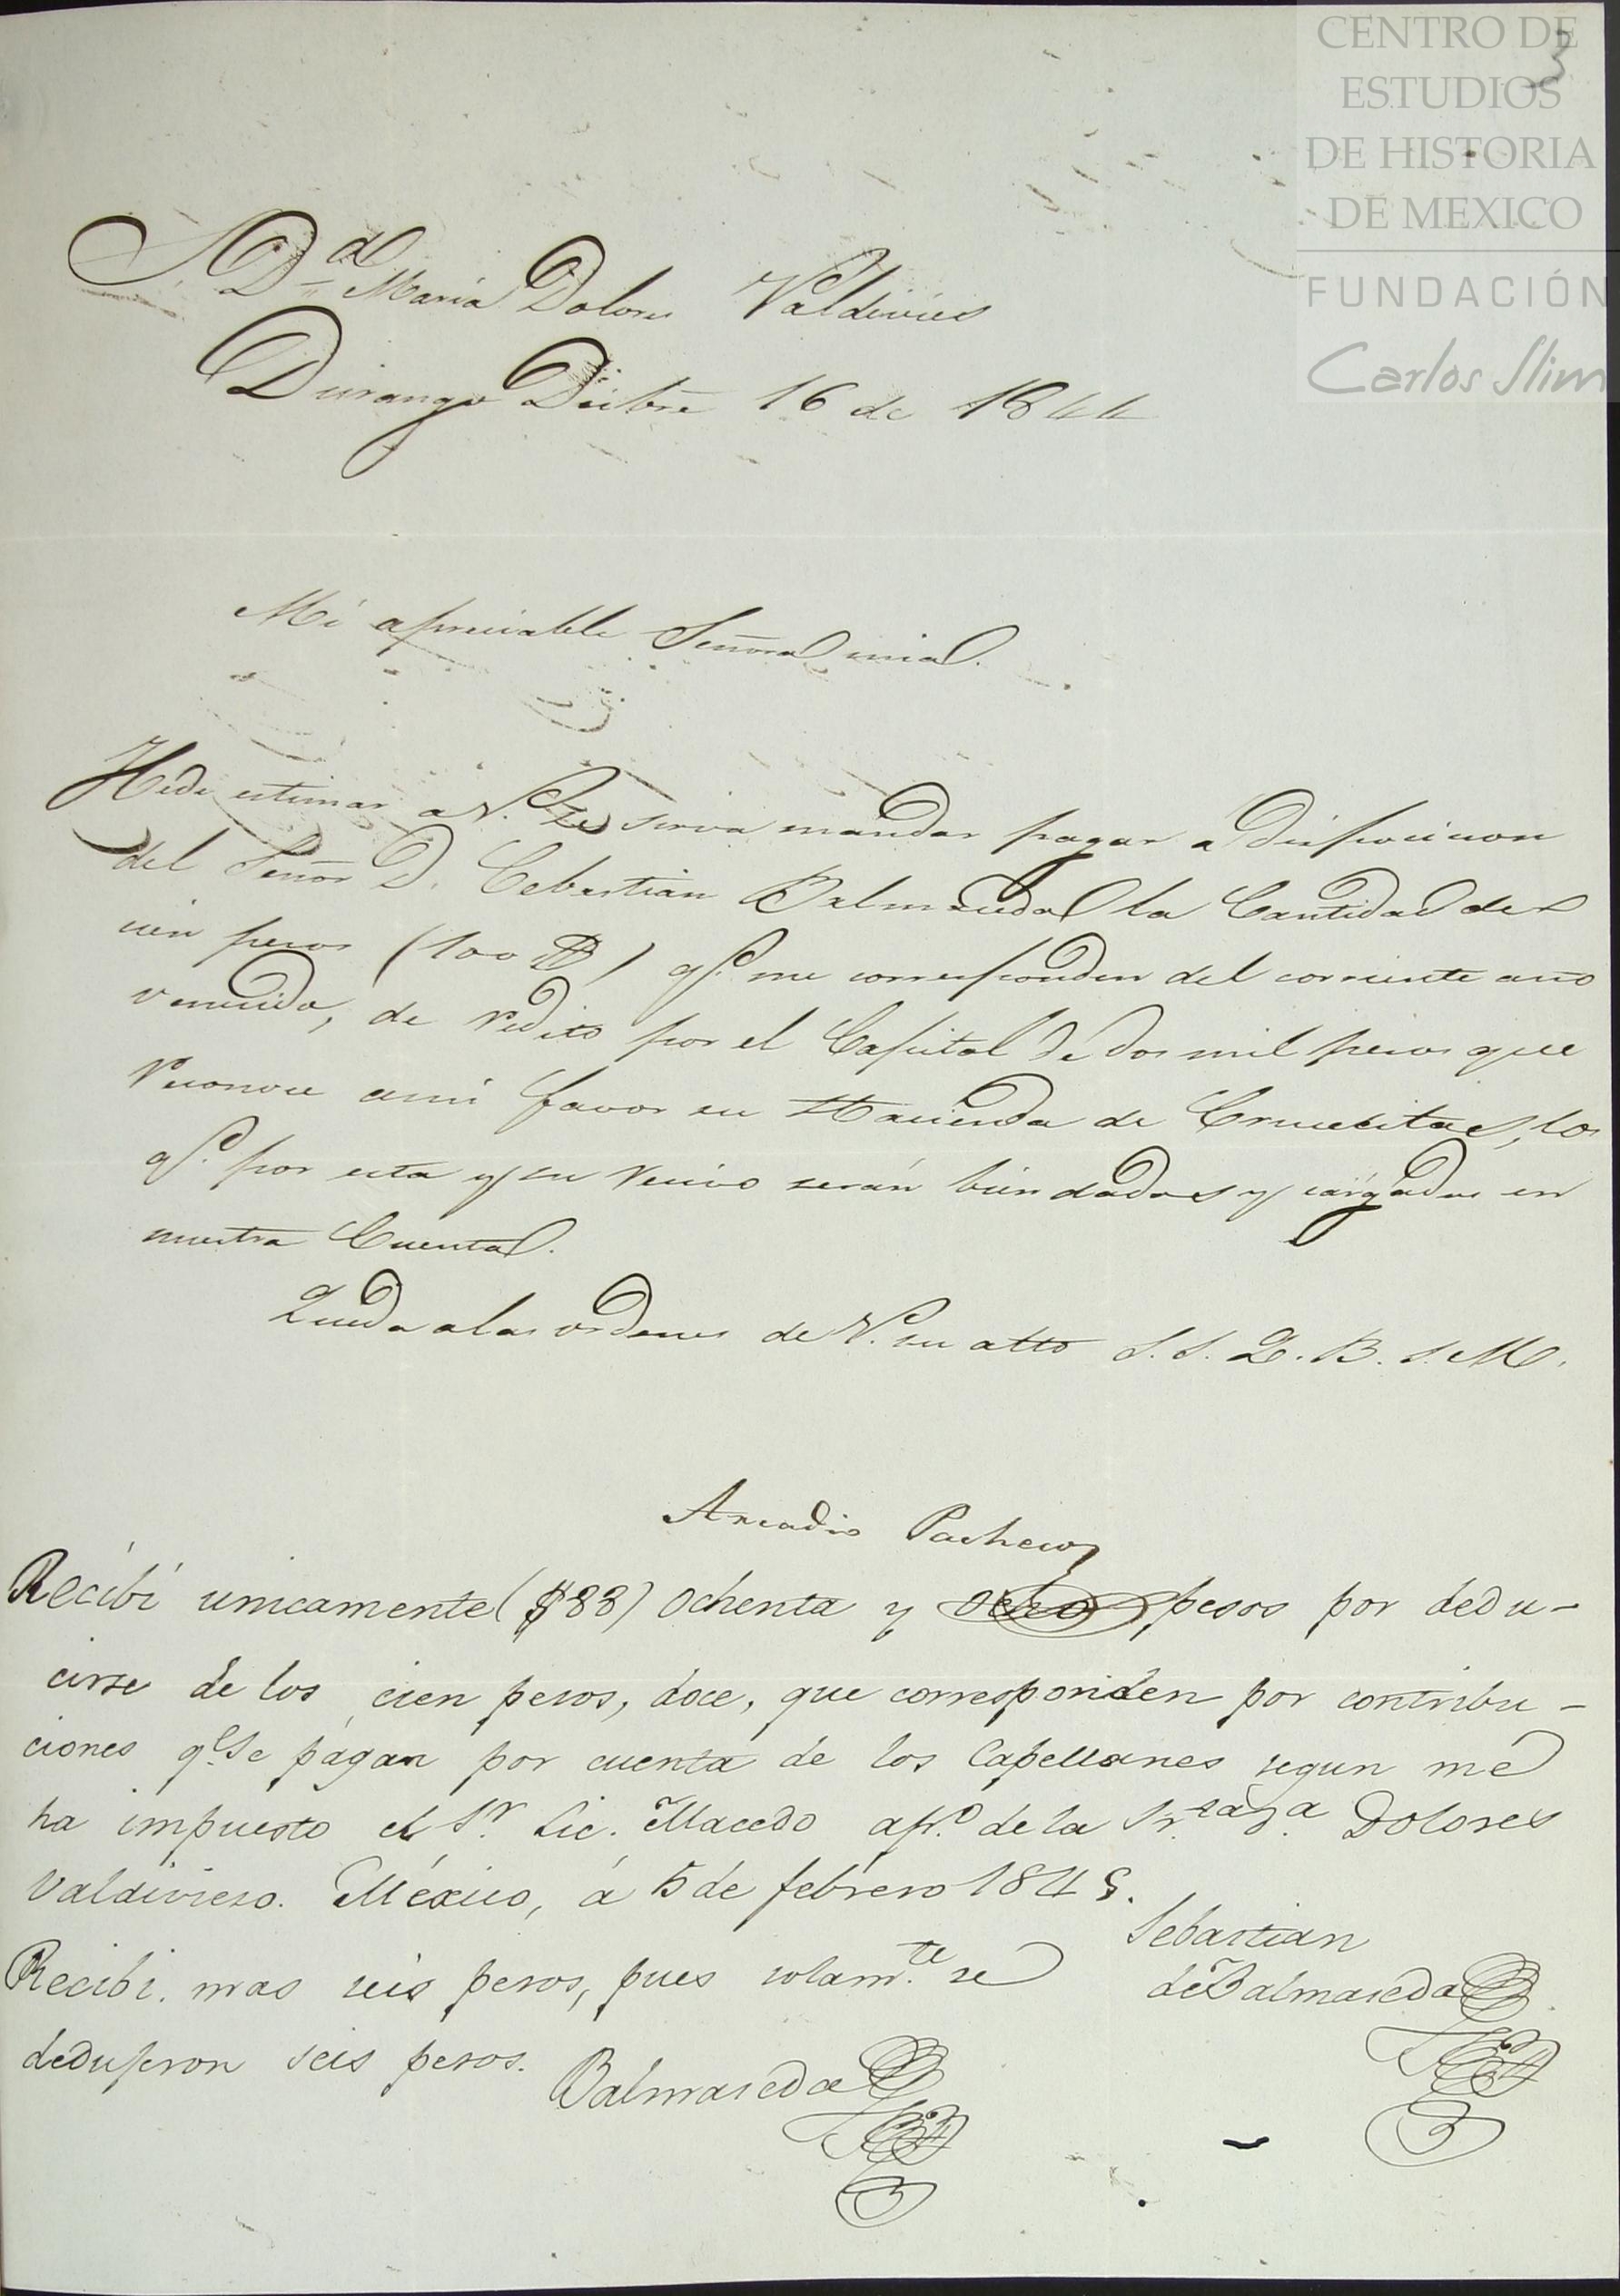 CENTRO DE
ESTUDIOS
DE HISTORIA
DE MEXICO
FUNDACIÓN
Carlos Slim
3
S. Dª Maria Dolores Valdivieso
Durango Dicbrẽ 16 de 1844
Mi apreciable Señora mia.
Hede estimar a V. se sirva mandar pagar á disposicion
del Señor D. Cebastian Balmaceda la Cantidad de
cien pesos (100 $) qᵉ me corresponden del corriente año
vencido, de redito por el Capital de dos mil pesos que
reconoce ami favor su Hacienda de Crucesitas, los
qᵉ por esta y su recivo serán bien dados y cargados en
nuestra Cuenta.
Queda a las ordenes de V. su atto S. S. Q. B. S. M.
Arcadio Pacheco
Recibi unicamente ($88) ochenta y ocho pesos por dedu-
cirse de los cien pesos, doce, que corresponden por contribu-
ciones qᵉ se págan por cuenta de los Capellanes segun me
ha impuesto el Sʳ. Lic. Macedo apᵒ. de la Sʳᵃ. Dᵃ. Dolores
Valdivieso. México, á 5 de febrero 1845.
Sebastian
de Balmaseda
Recibi. mas seis pesos, pues solamᵗᵉ se
dedujeron seis pesos. Balmaseda